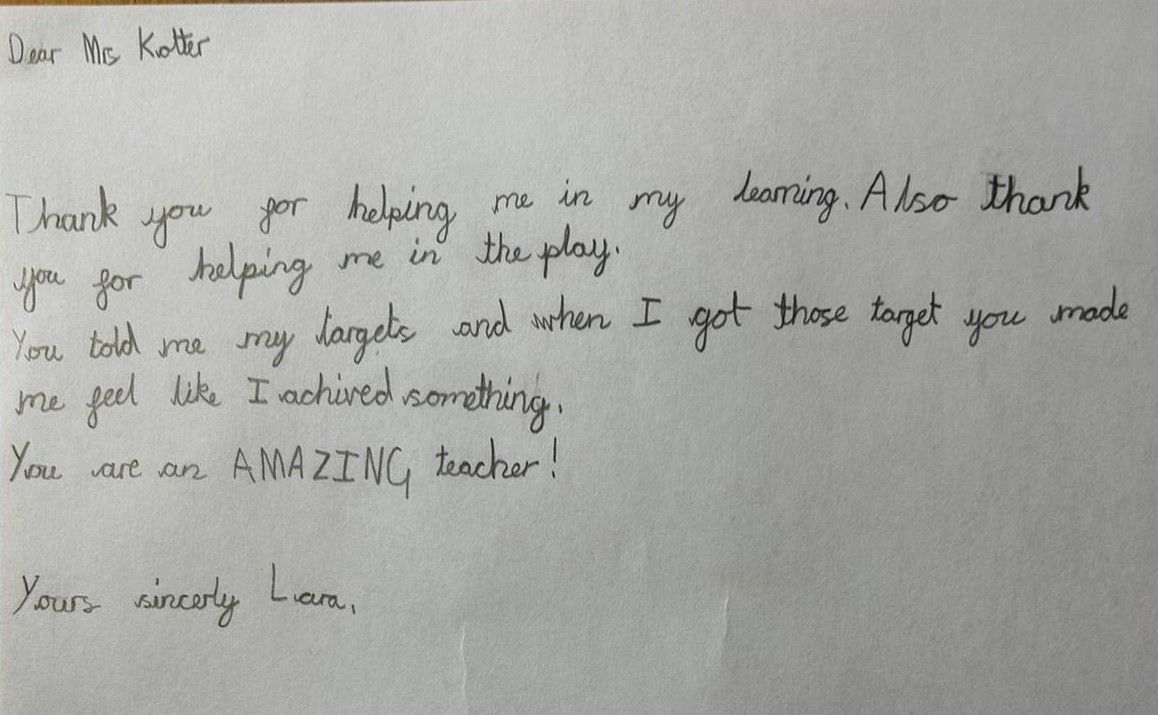 Dear Mrs Kotter
Thank you for helping me in my learning. Also thank
you for helping me in the play.
You told me my targets and when I got those target you made
me feel like I achived something.
You are an AMAZING teacher!
Yours sincerly Lara.